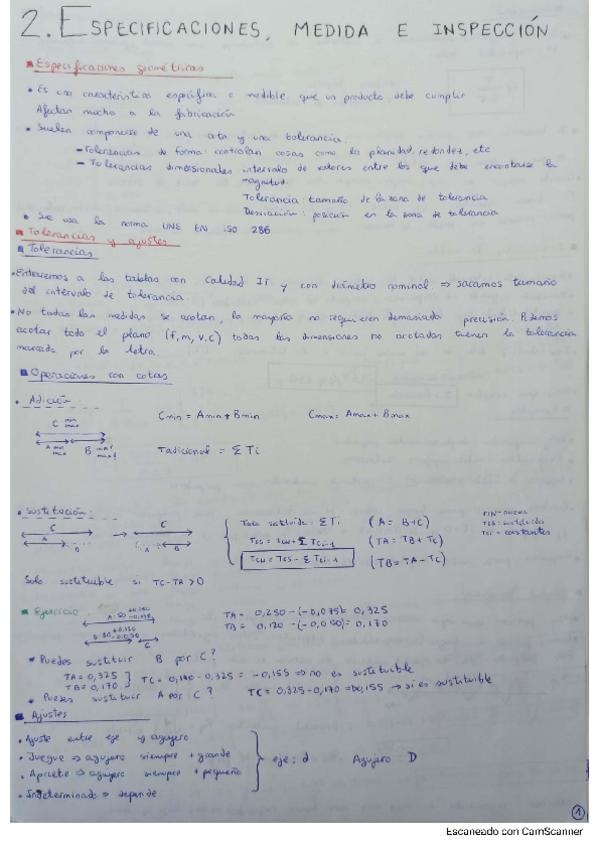 2. ESPECIFICACIONES, MEDIDA E INSPECCIÓN
Especificaciones geométricas
• Es una característica específica o medible que un producto debe cumplir
Afectan mucho a la fabricación
• Suelen componerse de una cota y una tolerancia.
- Tolerancias de forma: controlan cosas como la planidad, redondez, etc
- Tolerancias dimensionales intervalo de valores entre los que debe encontrarse la
magnitud.
Tolerancia: tamaño de la zona de tolerancia
Desviación: posición en la zona de tolerancia
• Se usa la norma UNE EN ISO 286
Tolerancias y ajustes
Tolerancias
• Entraremos a las tablas con Calidad IT y con diámetro nominal ⇒ sacamos tamaño
del intervalo de tolerancia.
• No todas las medidas se acotan, la mayoría no requieren demasiada precisión. Podemos
acotar todo el plano (f, m, v, c) todas las dimensiones no acotadas tienen la tolerancia
marcada por la letra.
Operaciones con cotas
• Adición:
C min max
Cmin = Amin + Bmin Cmax = Amax + Bmax
A min max B min max
Tadicional = ΣTi
• Sustitución:
C → C
A B A B
Tota sustituida: ΣTi (A = B+C)
(TA = TB + TC)
(TB = TA - TC)
TCS: sustituida
TCi = constantes
Solo sustituible si TC-TA > 0
Ejercicio
A: 50 +0,250 -0,075
TA = 0,250 - (-0,075) = 0,325
TB = 0,120 - (-0,050) = 0,170
• Puedes sustituir B por C?
TA = 0,325
TB = 0,170
TC = 0,170 - 0,325 = -0,155 ⇒ no es sustituible
• Puedes sustituir A por C? TC = 0,325 - 0,170 = 0,155 → si es sustituible
Ajustes
• Ajuste entre eje y agujero
• Juegue ⇒ agujero siempre + grande
• Apriete ⇒ agujero siempre + pequeño
• Indeterminado ⇒ depende
eje: d Agujero: D
1
Escaneado con CamScanner